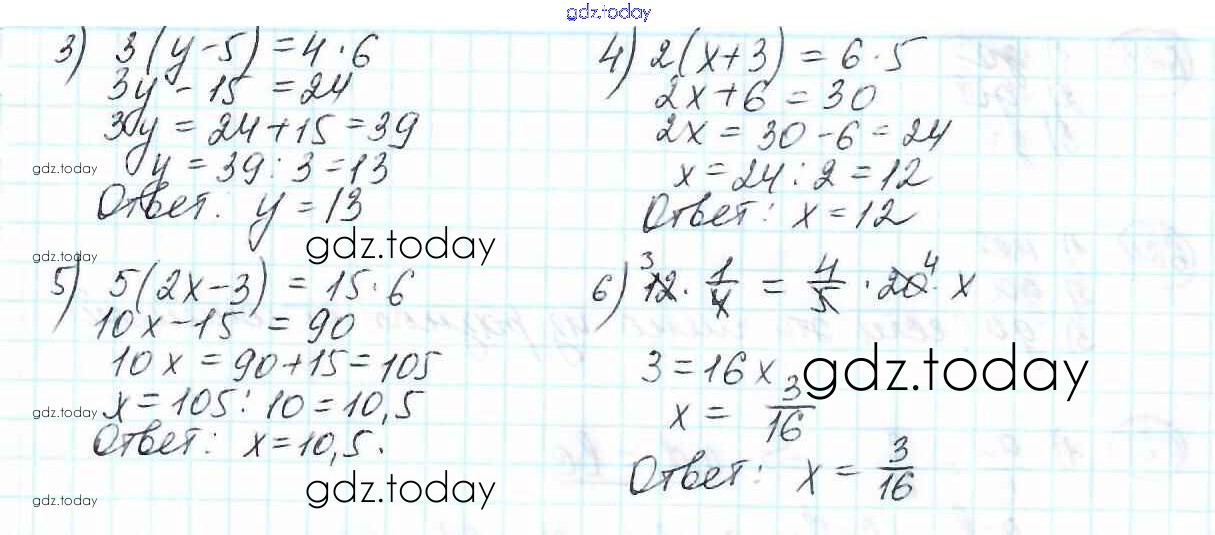 gdz.today
3) 3(y-5) = 4·6
3y - 15 = 24
3y = 24+15 = 39
y = 39 : 3 = 13
Ответ: y = 13
4) 2(x+3) = 6·5
2x+6 = 30
2x = 30-6 = 24
x = 24 : 2 = 12
Ответ: x = 12
gdz.today
gdz.today
gdz.today
5) 5(2x-3) = 15·6
10x-15 = 90
10x = 90+15 = 105
x = 105 : 10 = 10,5
Ответ: x = 10,5.
gdz.today
gdz.today
gdz.today
6) 12³ · 1/4 = 4/5 · 20⁴ · x
3 = 16x
gdz.today
x = 3/16
Ответ: x = 3/16